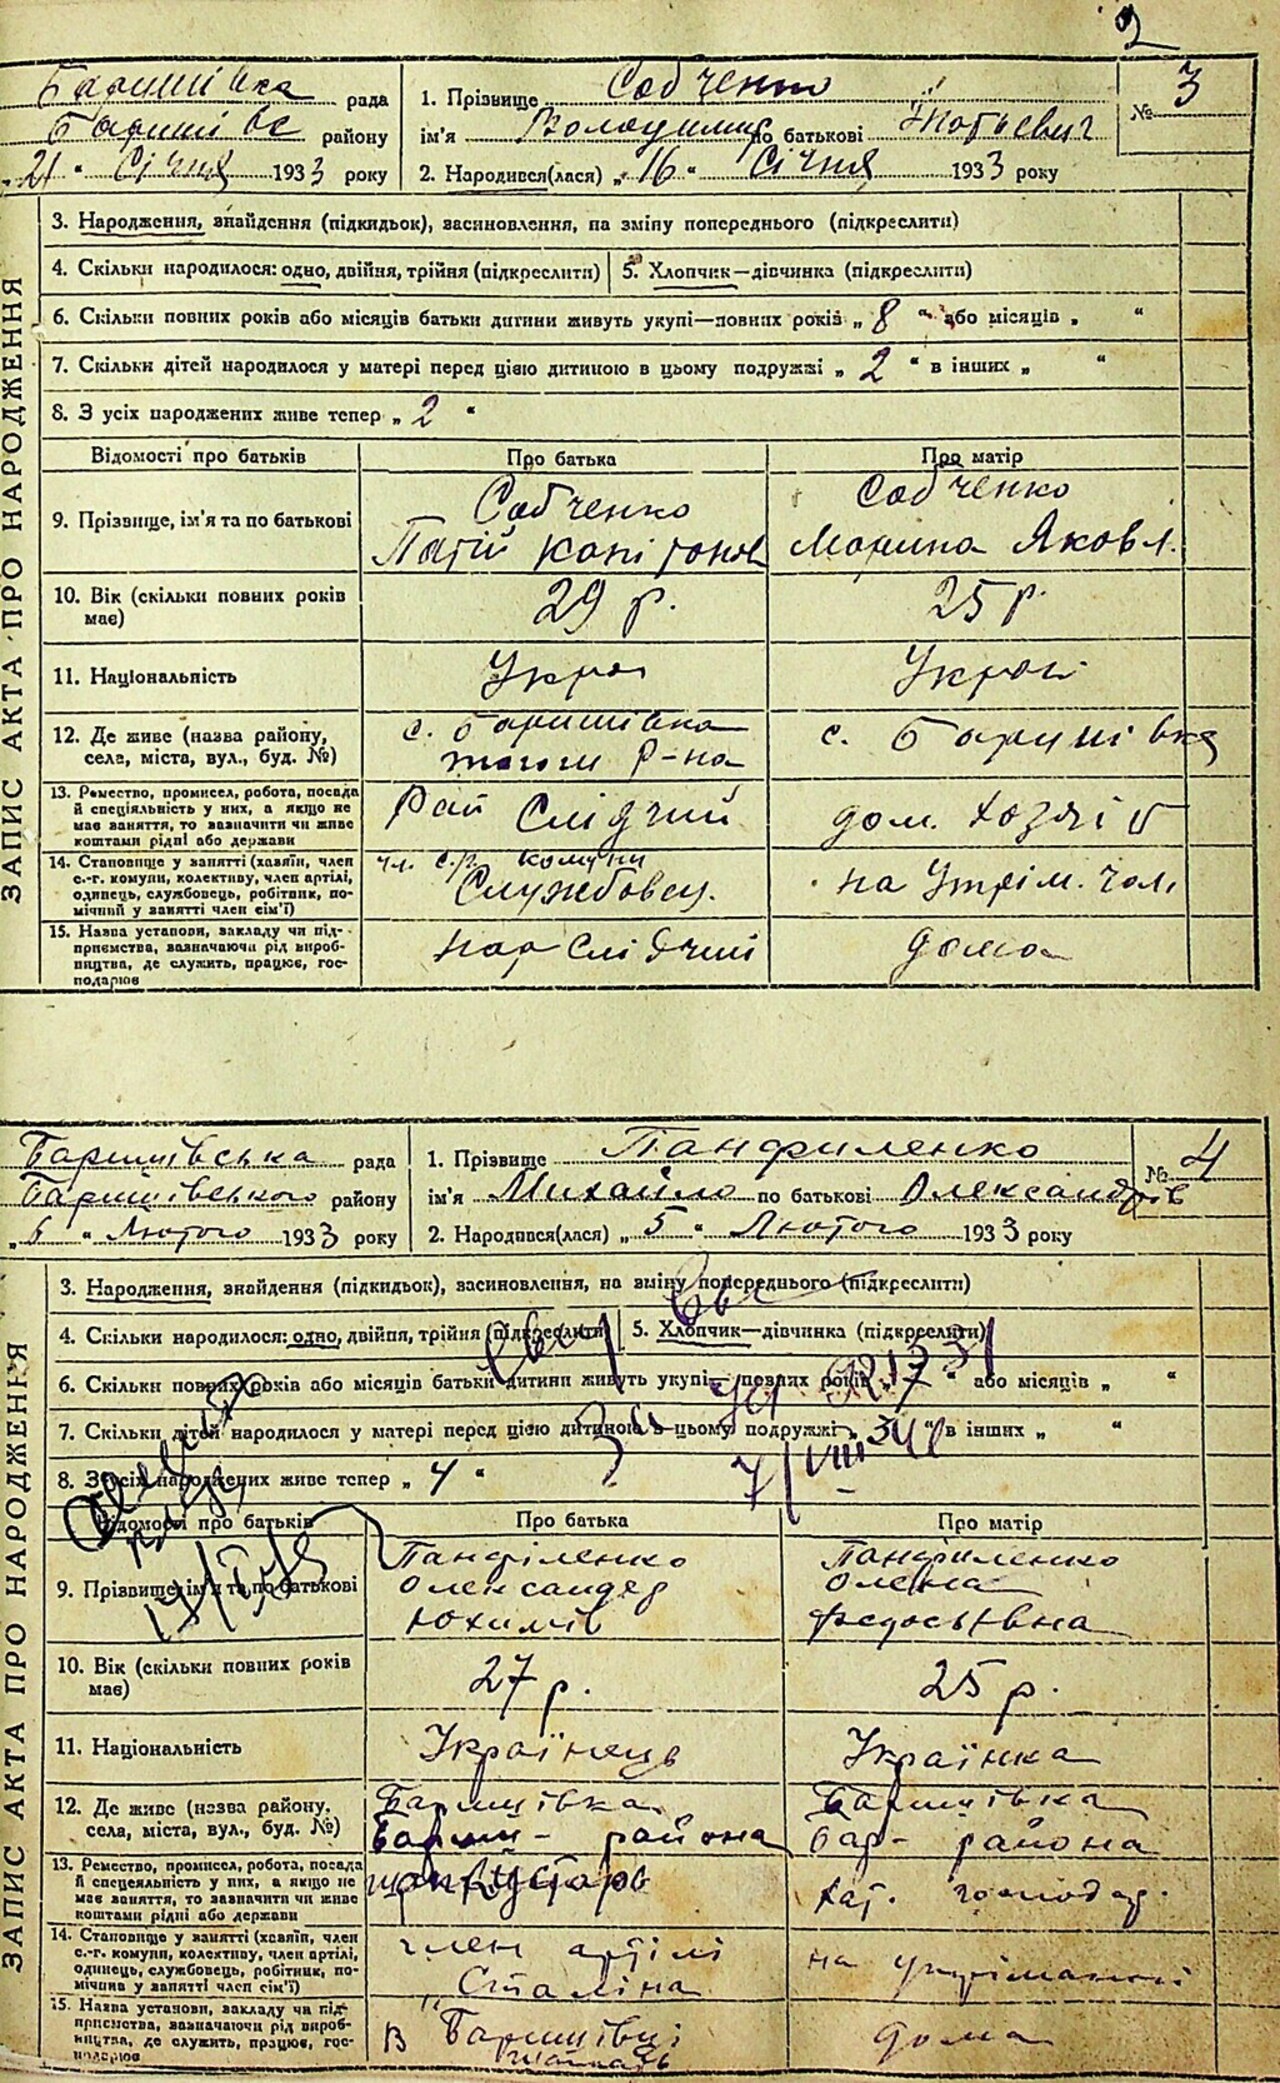 2
Баришівка рада
Баришівс району
„21“ Січня 1933 року
1. Прізвище Собченко
ім'я Володимир по батькові
2. Народився(лася) „16“ Січня 1933 року
№ 3
ЗАПИС АКТА ПРО НАРОДЖЕННЯ
3. Народження, знайдення (підкидьок), засиновлення, на зміну попереднього (підкреслити)
4. Скільки народилося: одно, двійня, трійня (підкреслити) 5. Хлопчик—дівчинка (підкреслити)
6. Скільки повних років або місяців батьки дитини живуть укупі—повних років „8“ або місяців „ “
7. Скільки дітей народилося у матері перед цією дитиною в цьому подружжі „2“ в інших „ “
8. З усіх народжених живе тепер „2“
Відомості про батьків Про батька Про матір
9. Прізвище, ім'я та по батькові
Собченко
Капітонов
Собченко
Марина Яковл.
10. Вік (скільки повних років
має)
29 р.
25 р.
11. Національність
Укра
Украї
12. Де живе (назва району,
села, міста, вул., буд. №)
с. Баришівка
того р-на
с. Баришівка
13. Ремество, промисел, робота, посада
й спеціяльність у них, а якщо не
має заняття, то зазначити чи живе
коштами рідні або держави
Рай Слідчий
дом. хозяй
14. Становище у занятті (хазяїн, член
с.-г. комуни, колективу, член артілі,
одинець, службовець, робітник, по-
мічний у занятті член сім'ї)
чл. с.г. комуни
Службовец.
на утрім. чол.
15. Назва установи, закладу чи під-
приємства, зазначаючи рід вироб-
ництва, де служить, працює, гос-
подарює
нар Слідчий
дома
Баришівська рада
Баришівського району
„6“ Лютого 1933 року
1. Прізвище Панфиленко
ім'я Михайло по батькові Олександрів
2. Народився(лася) „5“ Лютого 1933 року
№ 4
ЗАПИС АКТА ПРО НАРОДЖЕННЯ
3. Народження, знайдення (підкидьок), засиновлення, на зміну попереднього (підкреслити)
4. Скільки народилося: одно, двійня, трійня (підкреслити) 5. Хлопчик—дівчинка (підкреслити)
6. Скільки повних років або місяців батьки дитини живуть укупі—повних років „7“ або місяців „ “
7. Скільки дітей народилося у матері перед цією дитиною в цьому подружжі „3“ в інших „ “
8. З усіх народжених живе тепер „4“
7/VIII
Відомості про батьків Про батька Про матір
9. Прізвище, ім'я та по батькові
Панфіленко
Олександер
Юхимів
Панфиленко
Олена
Федосьївна
10. Вік (скільки повних років
має)
27 р.
25 р.
11. Національність
Українець
Українка
12. Де живе (назва району,
села, міста, вул., буд. №)
Баришівка
Бариш- района
Баришівка
Бар- района
13. Ремество, промисел, робота, посада
й спецеяльність у них, а якщо не
має заняття, то зазначити чи живе
коштами рідні або держави
хат. господар.
14. Становище у занятті (хазяїн, член
с.-г. комуни, колективу, член артілі,
одинець, службовець, робітник, по-
мічина у занятті член сім'ї)
член артілі
„Сталіна
на утріманні
15. Назва установи, закладу чи під-
приємства, зазначаючи рід вироб-
ництва, де служить, працює, гос-
подарює
в Баришівці
дома